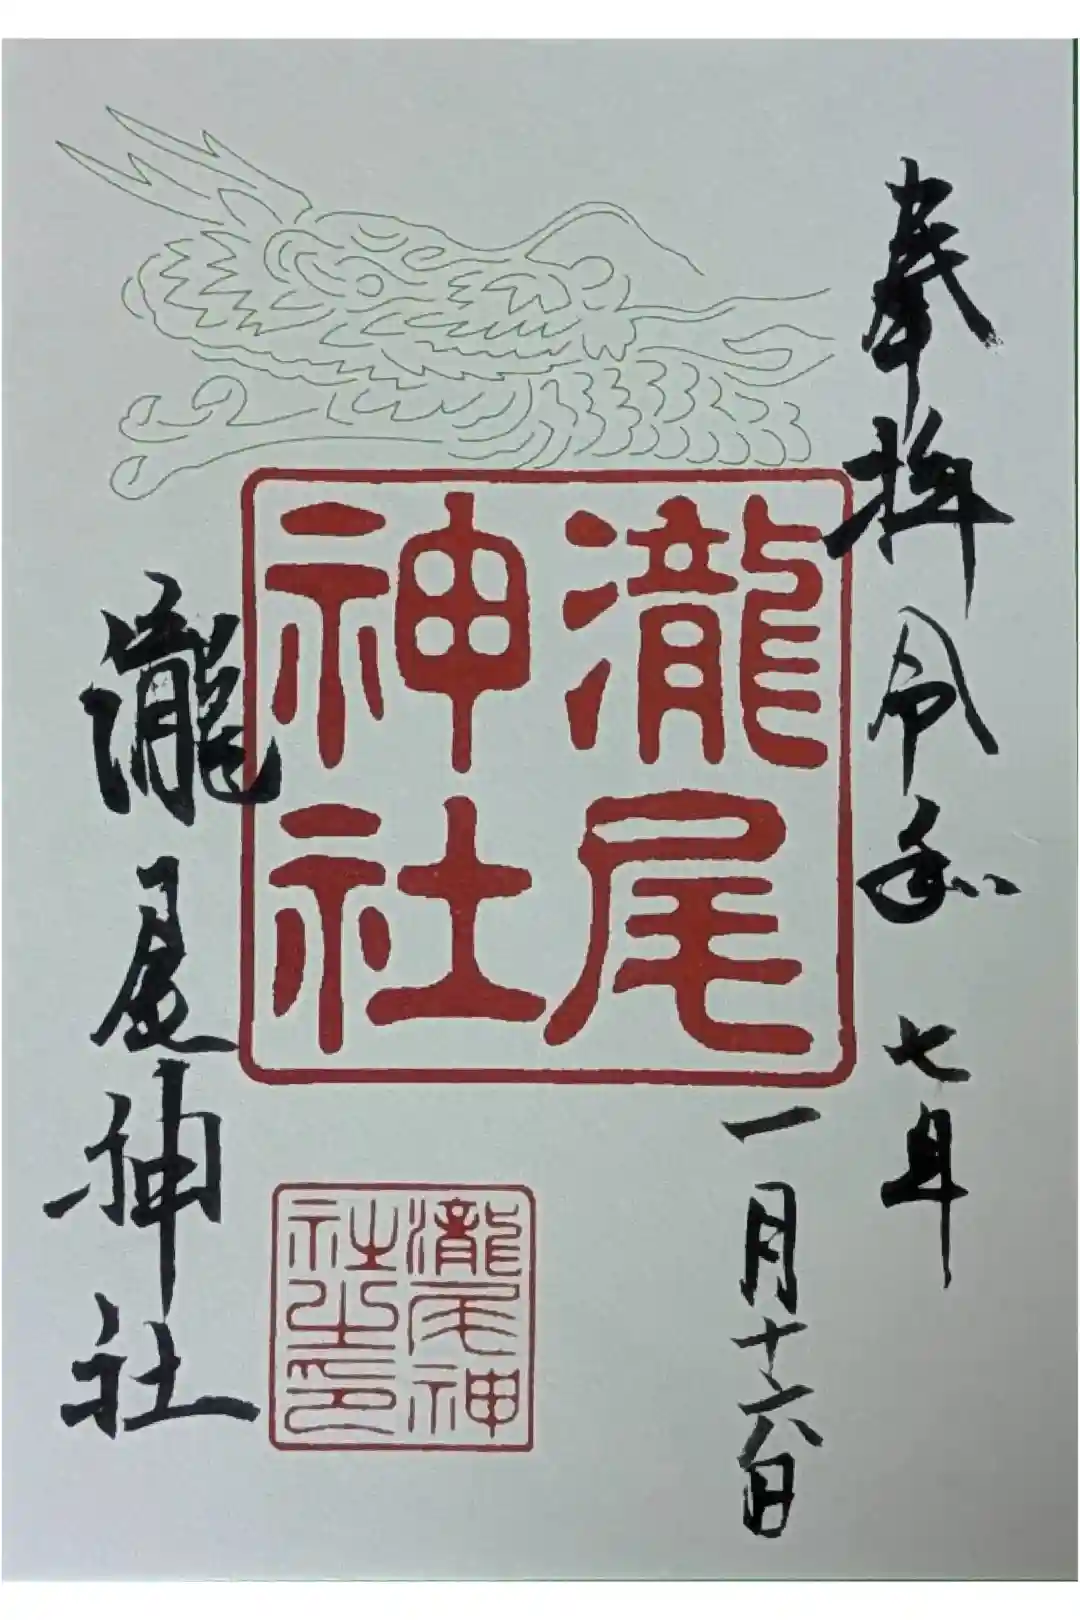 奉拝 令和七年
一月十六日
瀧尾
神社
瀧尾神
社之印
瀧尾神社